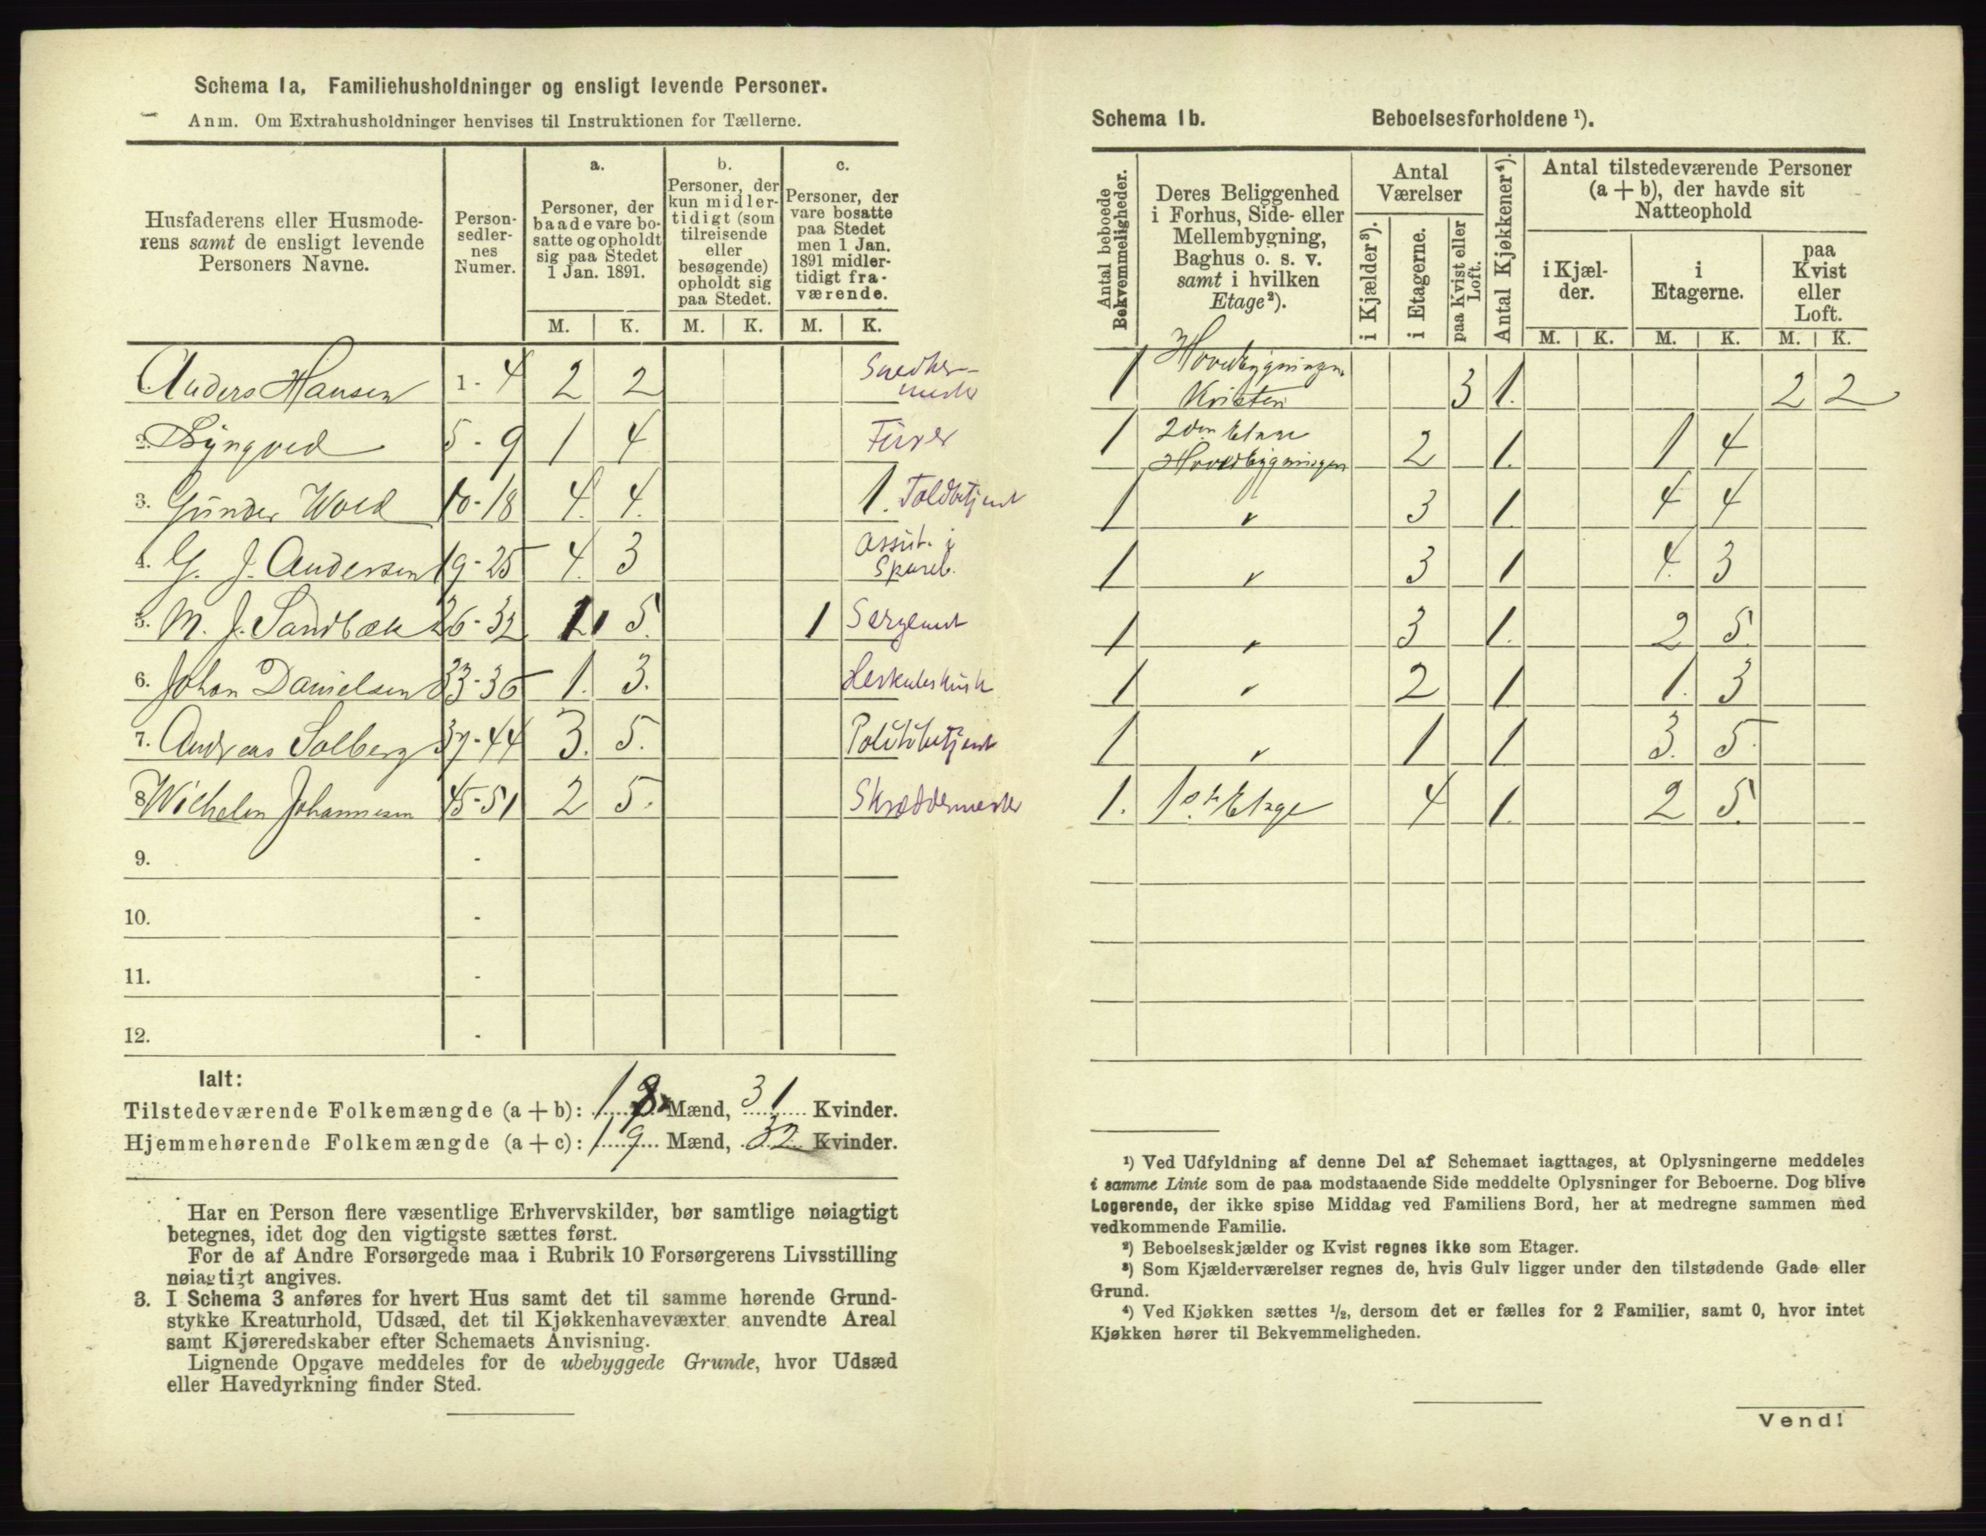 Schema 1a. Familiehusholdninger og ensligt levende Personer.
Anm. Om Extrahusholdninger henvises til Instruktionen for Tællerne.
Husfaderens eller Husmoderens samt de ensligt levende Personers Navne.
Personsedlernes Numer.
a. Personer, der baade vare bosatte og opholdt sig paa Stedet 1 Jan. 1891.
b. Personer, der kun midlertidigt (som tilreisende eller besøgende) opholdt sig paa Stedet.
c. Personer, der vare bosatte paa Stedet men 1 Jan. 1891 midlertidigt fraværende.
M. K. M. K. M. K.
Anders Hansen 1 - 4 2 2 Snedkermester
2. Syngved 5 - 9 1 4 Fürer
3. Günder Wold 10 - 18 4. 4. 1. Toldbetjent
4. G. J. Andersen 19 - 25 4. 3 Assist. i Spareb.
5. M. J. Sandbæk 26 - 32 1 5. 1 Sergeant
6. Johan Danielsen 33 - 36 1. 3.
7. Andreas Solberg 37 - 44 3. 5. Politibetjent
8 Wilhelm Johannesen 45 - 51 2 5. Skræddermester
9. -
10. -
11. -
12. -
Ialt:
Tilstedeværende Folkemængde (a + b): 18 Mænd, 31 Kvinder.
Hjemmehørende Folkemængde (a + c): 19 Mænd, 32 Kvinder.
Har en Person flere væsentlige Erhvervskilder, bør samtlige nøiagtigt
betegnes, idet dog den vigtigste sættes først.
For de af Andre Forsørgede maa i Rubrik 10 Forsørgerens Livsstilling
nøiagtigt angives.
3. I Schema 3 anføres for hvert Hus samt det til samme hørende Grund-
stykke Kreaturhold, Udsæd, det til Kjøkkenhavevæxter anvendte Areal
samt Kjøreredskaber efter Schemaets Anvisning.
Lignende Opgave meddeles for de ubebyggede Grunde, hvor Udsæd
eller Havedyrkning finder Sted.
Schema 1b. Beboelsesforholdene ¹).
Antal beboede Bekvemmeligheder.
Deres Beliggenhed i Forhus, Side- eller Mellembygning, Baghus o. s. v. samt i hvilken Etage²).
Antal Værelser
i Kjælder³).
i Etagerne.
paa Kvist eller Loft.
Antal Kjøkkener⁴).
Antal tilstedeværende Personer (a + b), der havde sit Natteophold
i Kjælder.
i Etagerne.
paa Kvist eller Loft.
M. K. M. K. M. K.
1 Hovedbygningen Kvisten 3 1. 2 2
1 2den Etage Hovedbygningen 2 1. 1 4
1 〃 3 1. 4 4
1 〃 3 1 4. 3
1 〃 3 1. 2 5.
1 〃 2 1 1. 3
1 〃 1 1 3. 5.
1. 1ste Etage 4 1. 2 5.
¹) Ved Udfyldning af denne Del af Schemaet iagttages, at Oplysningerne meddeles
i samme Linie som de paa modstaaende Side meddelte Oplysninger for Beboerne. Dog blive
Logerende, der ikke spise Middag ved Familiens Bord, her at medregne sammen med
vedkommende Familie.
²) Beboelseskjælder og Kvist regnes ikke som Etager.
³) Som Kjælderværelser regnes de, hvis Gulv ligger under den tilstødende Gade eller
Grund.
⁴) Ved Kjøkken sættes ½, dersom det er fælles for 2 Familier, samt 0, hvor intet
Kjøkken hører til Bekvemmeligheden.
Vend!